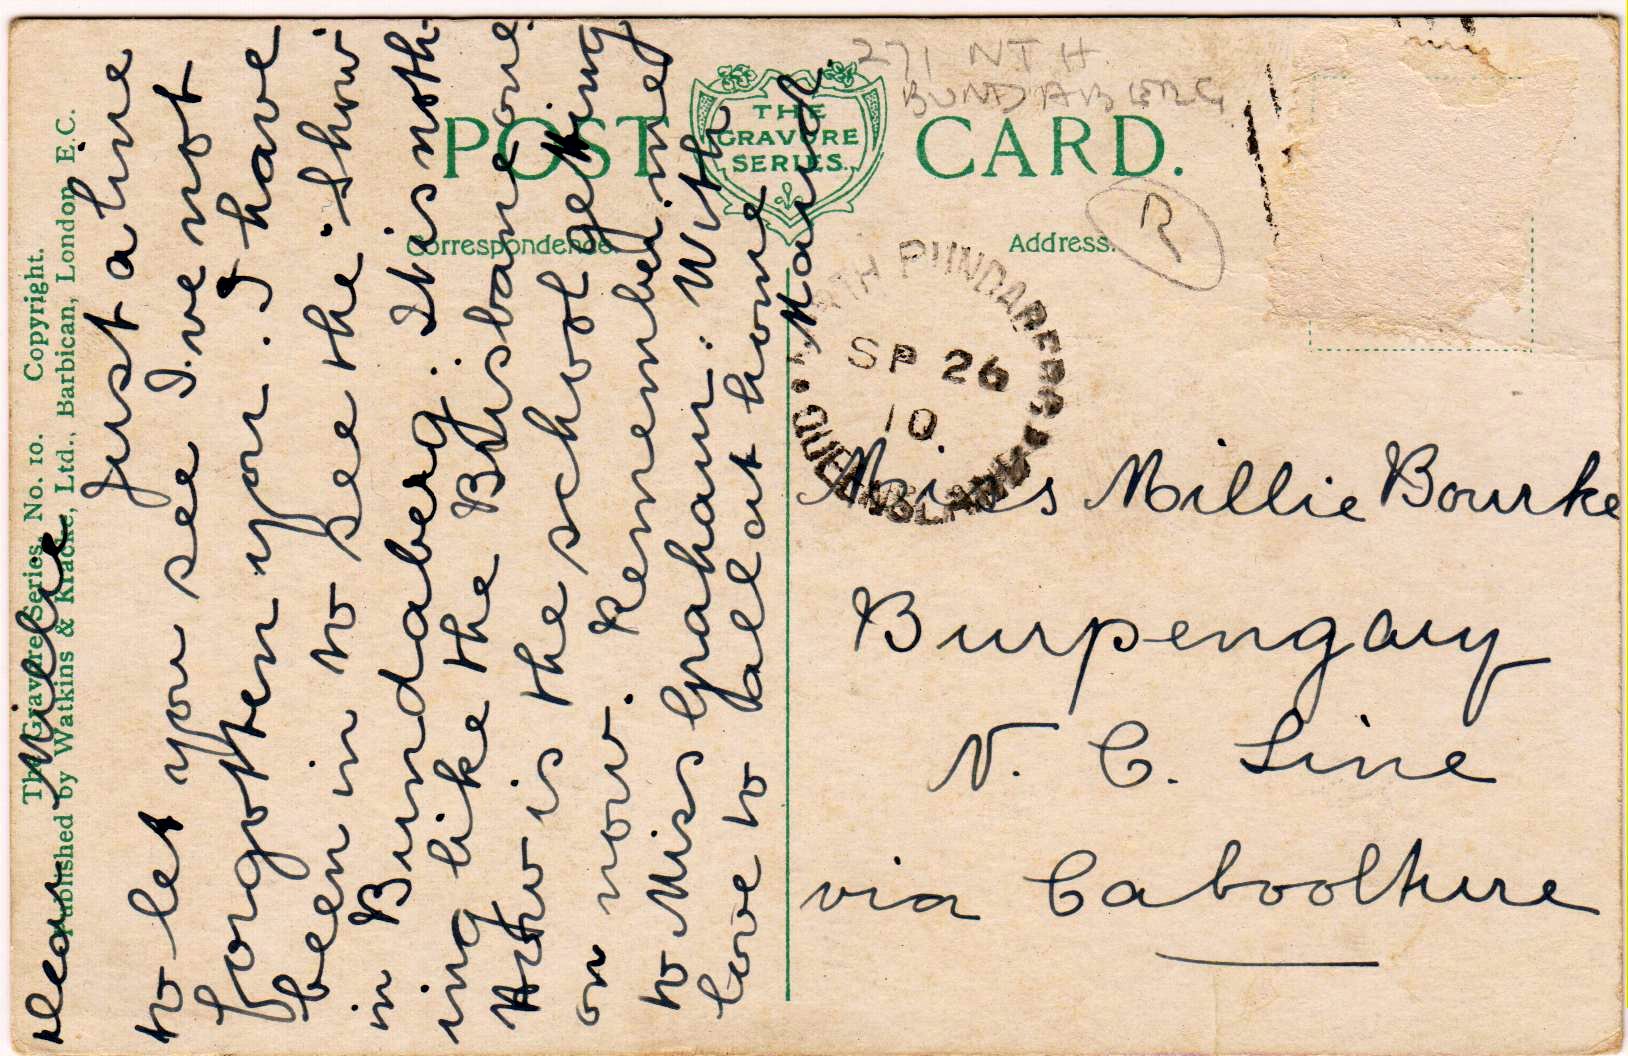 271 NTH
BUNDABERG
POST CARD.
THE
GRAVURE
SERIES.
Correspondence.
Address.
R
NORTH BUNDABERG
SP 26
10
QUEENSLAND
The Gravure Series, No. 10. Copyright.
Published by Watkins & Kracke, Ltd., Barbican, London, E.C.
Dear Millie
Just a line
to let you see I've not
forgotten you. I have
been in to see the "Show"
in Bundaberg. It is noth-
ing like the Brisbane one
How is the school getting
on now. Remember me
to Miss Graham. With
love to all at home
Maud.
Miss Millie Bourke
Burpengary
N. C. Line
via Caboolture